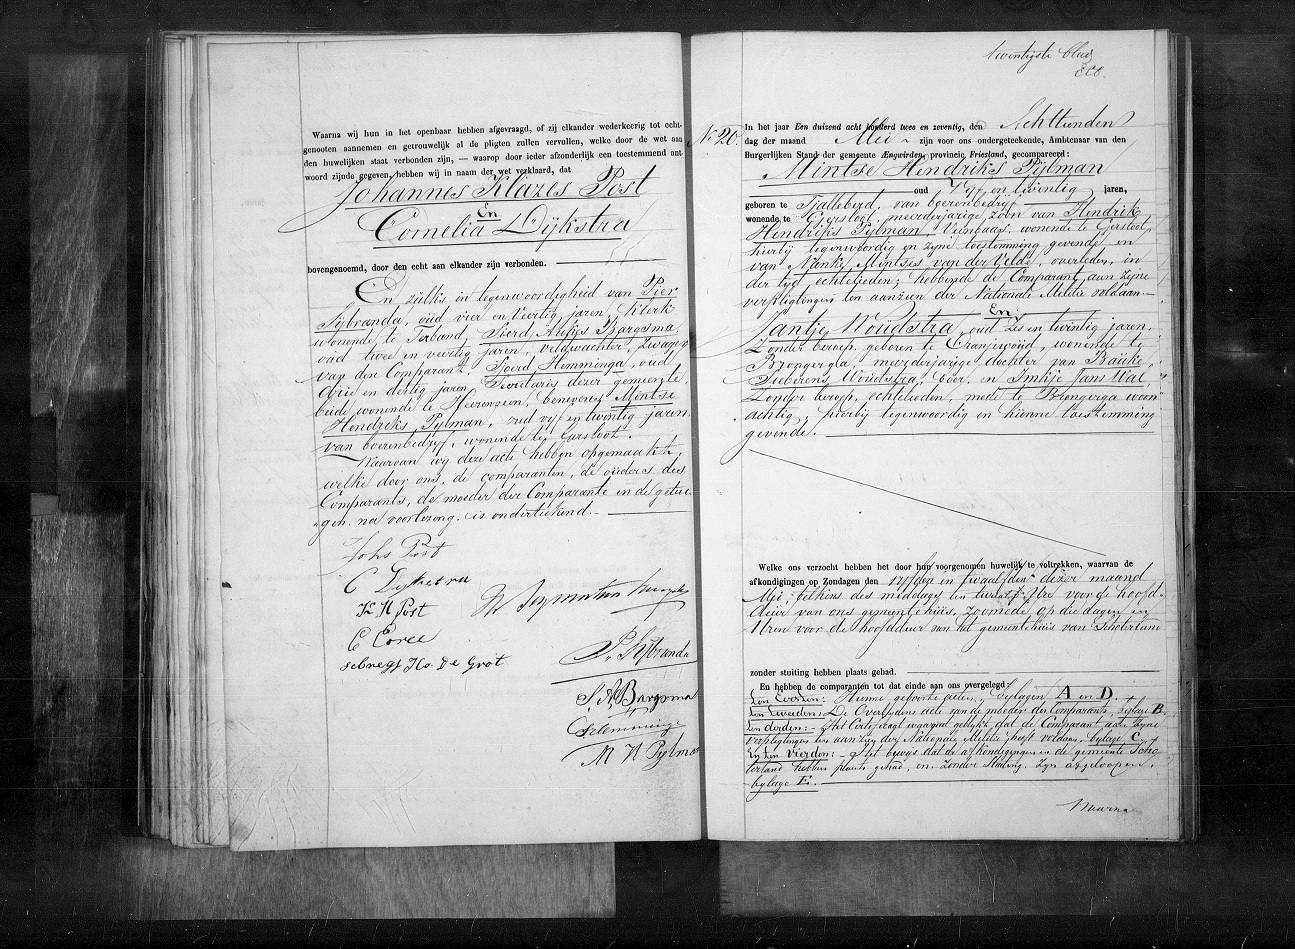 Waarna wij hun in het openbaar hebben afgevraagd, of zij elkander wederkeerig tot echt-
genooten aannemen en getrouwelijk al de pligten zullen vervullen, welke door de wet aan
den huwelijken staat verbonden zijn, — waarop door ieder afzonderlijk een toestemmend ant-
woord zijnde gegeven, hebben wij in naam der wet verklaard, dat
Johannes Klazes Post
En
Cornelia Dijkstra
bovengenoemd, door den echt aan elkander zijn verbonden.
En zulks in tegenwoordigheid van Pier
Sijbranda, oud vier en veertig jaren, Klerk
wonende te Terband, Sjoerd Aukes Bargsma,
oud twee en veertig jaren, veldwachter, Zwager
van den Comparant, Sjoerd Hemminga, oud
drie en dertig jaren, Secretaris dezer gemeente,
beide wonende te Heerenveen, benevens Mintse
Hendriks Pijlman, oud vijf en twintig jaren
van boerenbedrijf, wonende te Gersloot.
Waarvan wij deze acte hebben opgemaakt,
welke door ons, de comparanten, de ouders des
Comparants, de moeder der Comparante en de getui-
gen, na voorlezing, is onderteekend.
Johs Post
C Dijkstra
K H Post
P. Sijbranda
S A Bargsma
SHemminga
M H Pijlman
twintigste blad
No 20.
In het jaar Een duizend acht honderd twee en zeventig, den Achttienden
dag der maand Mei zijn voor ons ondergeteekende, Ambtenaar van den
Burgerlijken Stand der gemeente Engwirden, provincie Friesland, gecompareerd:
Mintse Hendriks Pijlman
oud Vijf en twintig jaren,
geboren te Tjalleberd, van boerenbedrijf
wonende te Gersloot, meerderjarige zoon van Hendrik
Hendriks Pijlman, Veenbaas, wonende te Gersloot,
hierbij tegenwoordig en zijne toestemming gevende en
van Nanke Mintses van der Velde, overleden, in
der tijd echtelieden; hebbende de Comparant aan zijne
verpligtingen ten aanzien der Nationale Militie voldaan.
En
Jantje Woudstra, oud zes en twintig jaren,
Zonder beroep, geboren te Oranjewoud, wonende te
Brongerga, meerderjarige dochter van Bauke
Sieberens Woudstra, boer, en Imkje Jans Wal,
Zonder beroep, echtelieden, mede te Brongerga woon
achtig, hierbij tegenwoordig en hunne toestemming
gevende.
Welke ons verzocht hebben het door hun voorgenomen huwelijk te voltrekken, waarvan de
afkondigingen op Zondagen den vijfden en twaalfden dezer maand
Mei, telkens des middags ten twaalf Ure voor de hoofd-
deur van ons gemeentehuis, zoomede op die dagen en
Uren voor de hoofddeur van het gemeentehuis van Schoterland
zonder stuiting hebben plaats gehad.
En hebben de comparanten tot dat einde aan ons overgelegd:
Ten Eersten: Hunne geboorte acten, bylagen A en D.
Ten Tweeden: De Overlijdens acte van de moeder des Comparants, bylage B.
Ten derden: Het Certificaat waaruit gebykt, dat de Comparant aan Zijne
verpligtingen ten aanzien der Nationale Militie heeft voldaan, bylage C.
En Ten Vierden: Het bewijs dat de afkondigingen in de gemeente Scho
terland hebben plaats gehad, en Zonder Stuiting, Zyn afgeloopen,
bylage E.
Waarna